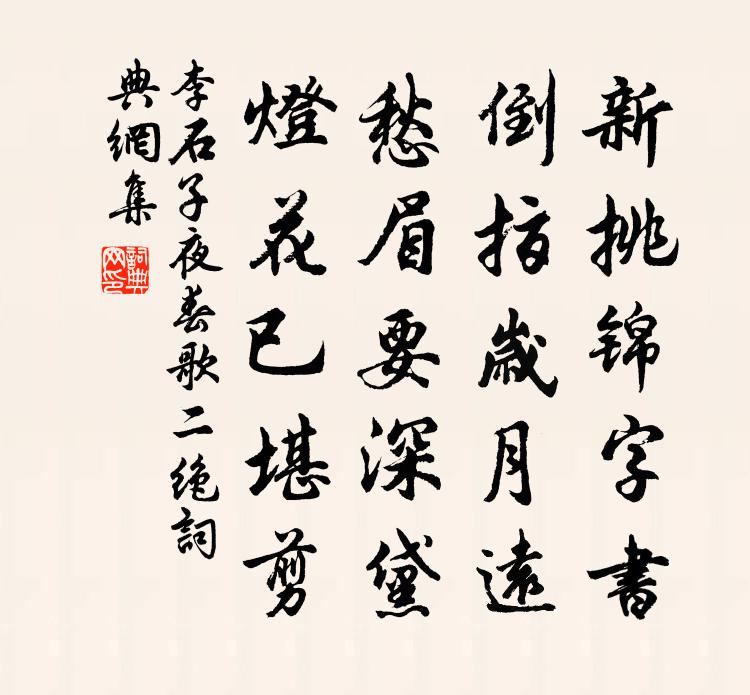 新挑錦字書
倒指歲月遠
愁眉要深黛
燈花已堪剪
李石子夜春歌二絶詞
典網集
詞典
网印